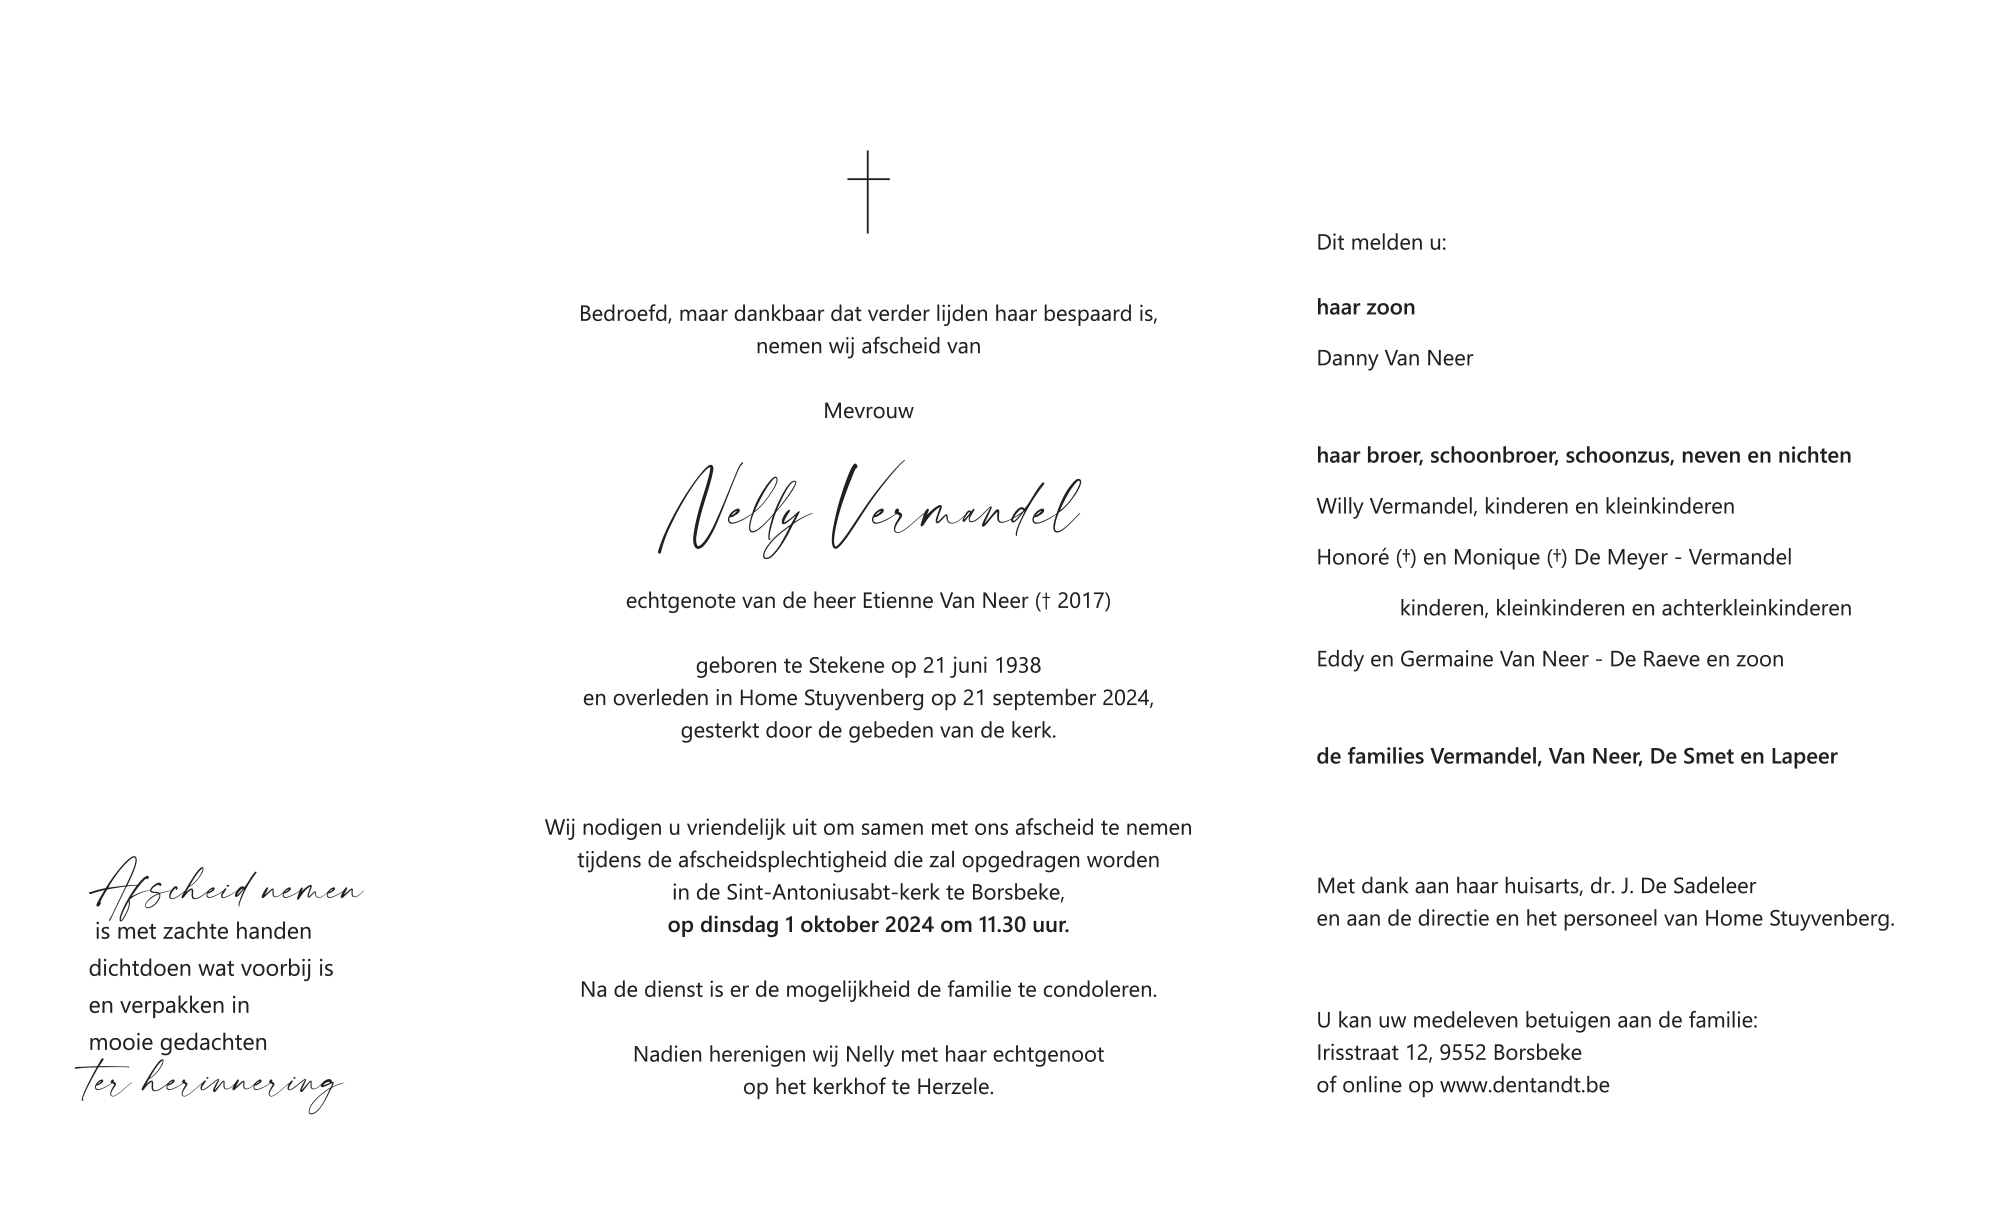 Afscheid nemen
is met zachte handen
dichtdoen wat voorbij is
en verpakken in
mooie gedachten
ter herinnering
Bedroefd, maar dankbaar dat verder lijden haar bespaard is,
nemen wij afscheid van
Mevrouw
Nelly Vermandel
echtgenote van de heer Etienne Van Neer († 2017)
geboren te Stekene op 21 juni 1938
en overleden in Home Stuyvenberg op 21 september 2024,
gesterkt door de gebeden van de kerk.
Wij nodigen u vriendelijk uit om samen met ons afscheid te nemen
tijdens de afscheidsplechtigheid die zal opgedragen worden
in de Sint-Antoniusabt-kerk te Borsbeke,
op dinsdag 1 oktober 2024 om 11.30 uur.
Na de dienst is er de mogelijkheid de familie te condoleren.
Nadien herenigen wij Nelly met haar echtgenoot
op het kerkhof te Herzele.
Dit melden u:
haar zoon
Danny Van Neer
haar broer, schoonbroer, schoonzus, neven en nichten
Willy Vermandel, kinderen en kleinkinderen
Honoré (†) en Monique (†) De Meyer - Vermandel
kinderen, kleinkinderen en achterkleinkinderen
Eddy en Germaine Van Neer - De Raeve en zoon
de families Vermandel, Van Neer, De Smet en Lapeer
Met dank aan haar huisarts, dr. J. De Sadeleer
en aan de directie en het personeel van Home Stuyvenberg.
U kan uw medeleven betuigen aan de familie:
Irisstraat 12, 9552 Borsbeke
of online op www.dentandt.be